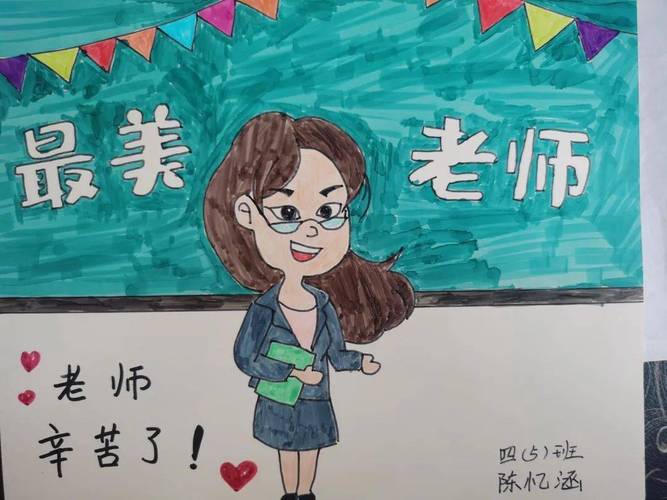 最美 老师
老师
辛苦了！
四(5)班
陈忆涵